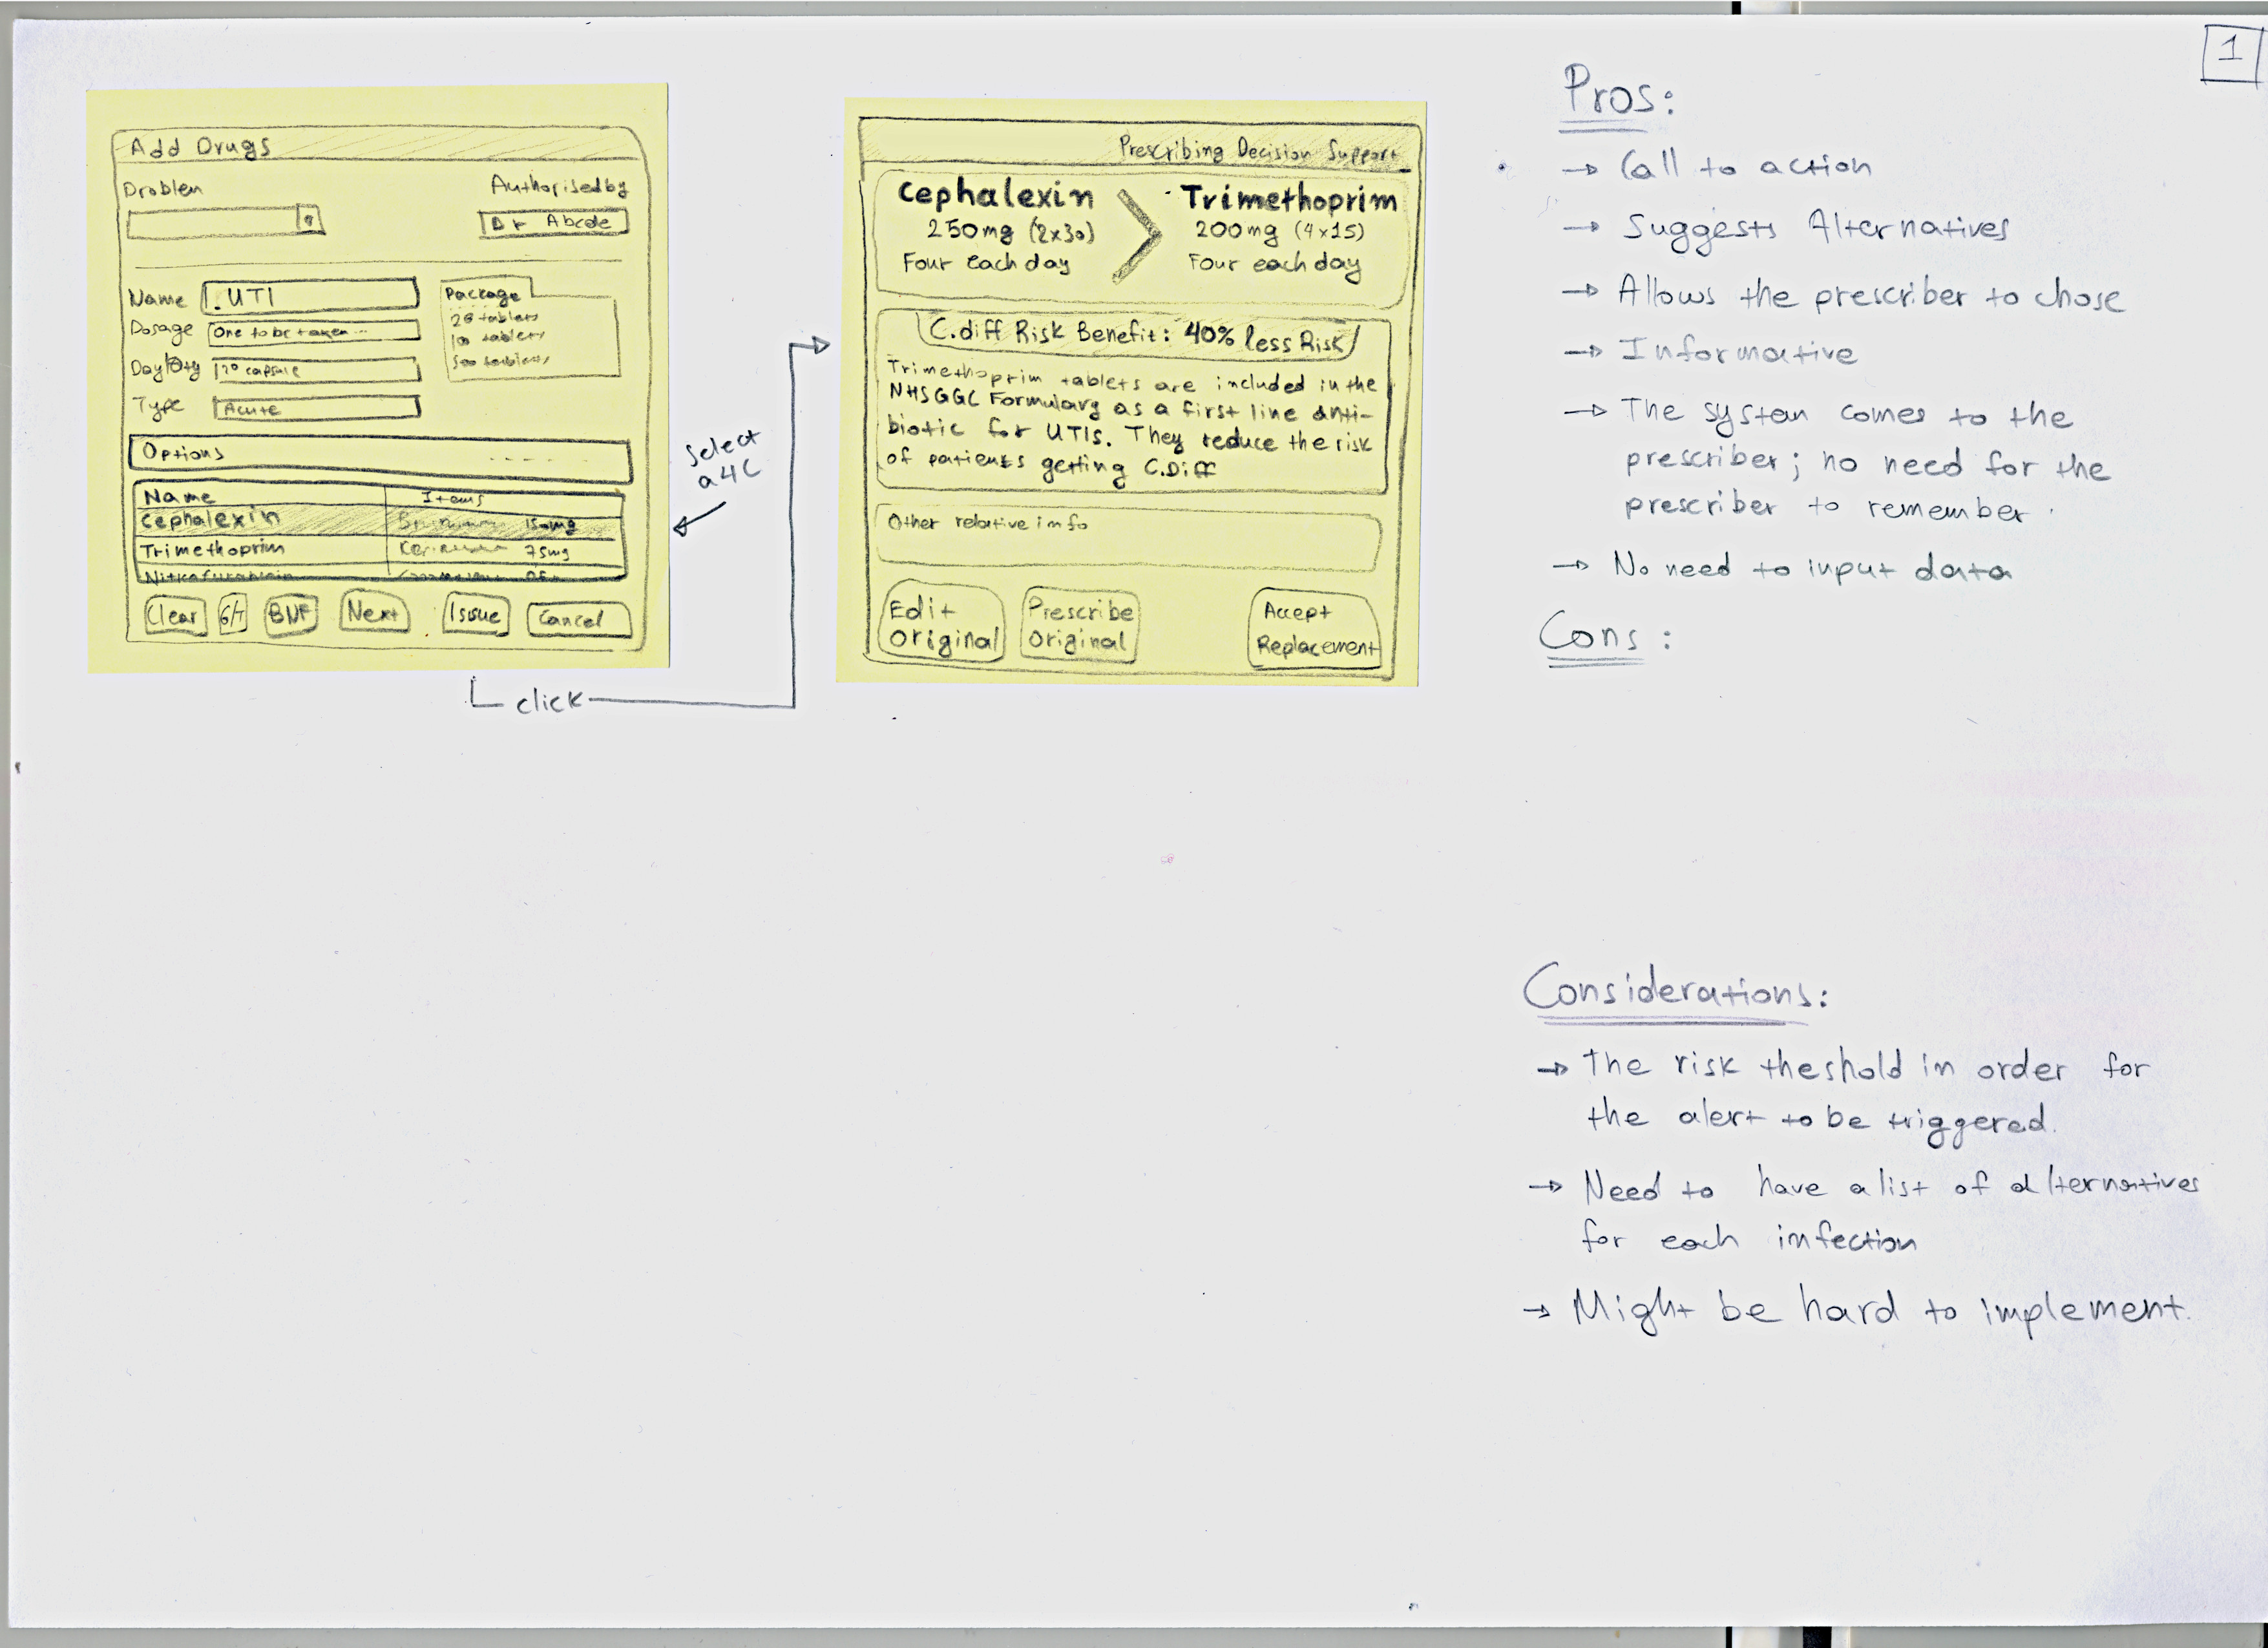 1
Add Drugs
Problem
Authorisedby
Dr Abcde
Name
. UTI
Dosage
One to be taken ...
Day/Qty
capsule
Type
Acute
Package
28 tablets
10 tablets
500 tablets
Options
Name
Items
Cephalexin
150mg
Trimethoprim
75mg
Clear
6/7
BNF
Next
Issue
Cancel
Select
a 4C
click
Prescribing Decision Support
Cephalexin
250mg (2x30)
Four each day
Trimethoprim
200mg (4x15)
Four each day
C.diff Risk Benefit: 40% less Risk
Trimethoprim tablets are included in the
NHSGGC Formulary as a first line anti-
biotic for UTIs. They reduce the risk
of patients getting C.Diff
Other relative info
Edit
Original
Prescribe
Original
Accept
Replacement
Pros:
→ Call to action
→ Suggests Alternatives
→ Allows the prescriber to chose
→ Informative
→ The system comes to the
prescriber; no need for the
prescriber to remember.
→ No need to input data
Cons:
Considerations:
→ The risk theshold in order for
the alert to be triggered.
→ Need to have a list of alternatives
for each infection
→ Might be hard to implement.